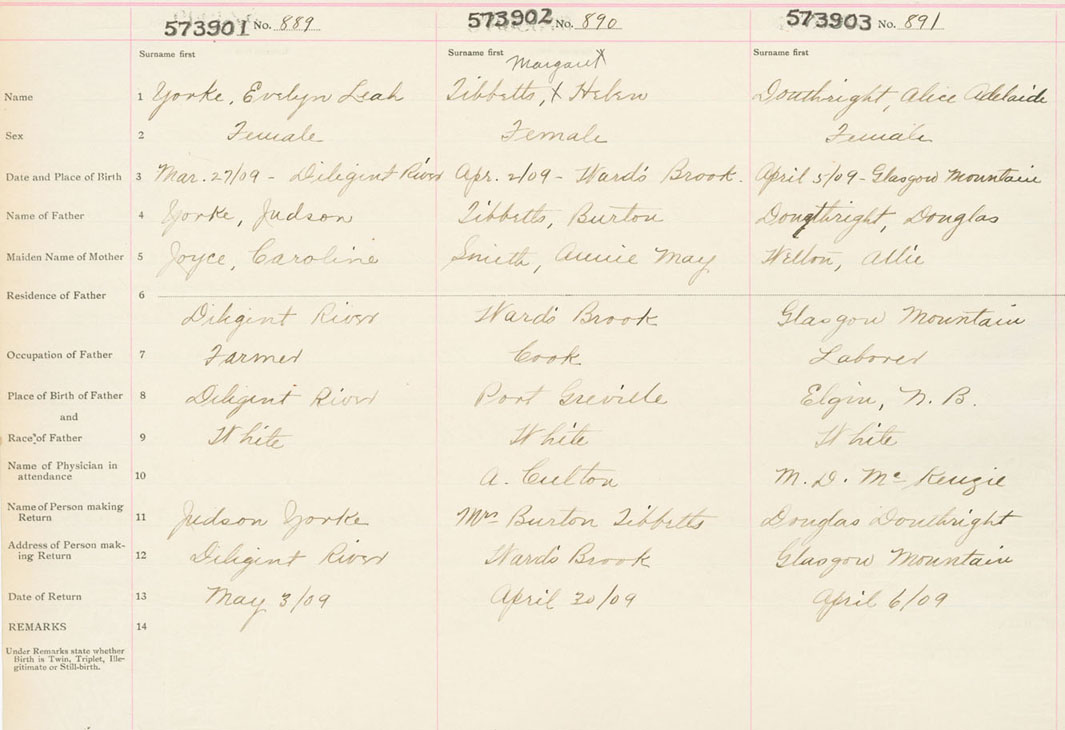 573901 No. 889 573902 No. 890 573903 No. 891
Surname first Surname first Surname first
Margaret X
Name 1 Yorke, Evelyn Leah Tibbetts, X Helen Douthright, Alice Adelaide
Sex 2 Female Female Female
Date and Place of Birth 3 Mar. 27/09 - Diligent River Apr. 2/09 - Ward's Brook. April 5/09 - Glasgow Mountain
Name of Father 4 Yorke, Judson Tibbetts, Burton Douthright, Douglas
Maiden Name of Mother 5 Joyce, Caroline Smith, Annie May Welton, Allie
Residence of Father 6
Diligent River Ward's Brook Glasgow Mountain
Occupation of Father 7 Farmer Cook Laborer
Place of Birth of Father 8 Diligent River Port Greville Elgin, N. B.
and
Race of Father 9 White White White
Name of Physician in
attendance 10 A. Culton M. D. McKenzie
Name of Person making
Return 11 Judson Yorke Mrs Burton Tibbetts Douglas Douthright
Address of Person mak-
ing Return 12 Diligent River Ward's Brook Glasgow Mountain
Date of Return 13 May 3/09 April 30/09 April 6/09
REMARKS 14
Under Remarks state whether
Birth is Twin, Triplet, Ille-
gitimate or Still-birth.